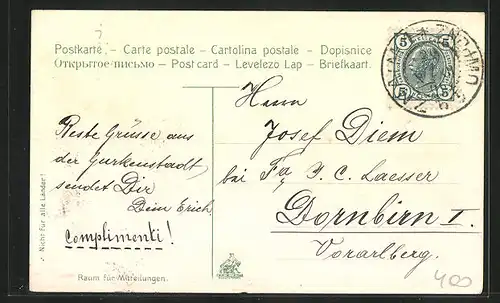 Postkarte. – Carte postale – Cartolina postale – Dopisnice
Открытое письмо – Postcard – Levelezo Lap – Briefkaart.
5 5
5 5
ZNAIM ZNOJMO
Herrn
Josef Diem
bei Fa. J. C. Laesser
Dornbirn I.
Vorarlberg.
Beste Grüsse aus
der Gurkenstadt
sendet Dir
Dein Erich
Complimenti!
Nicht für alle Länder!
Raum für Mitteilungen.
400